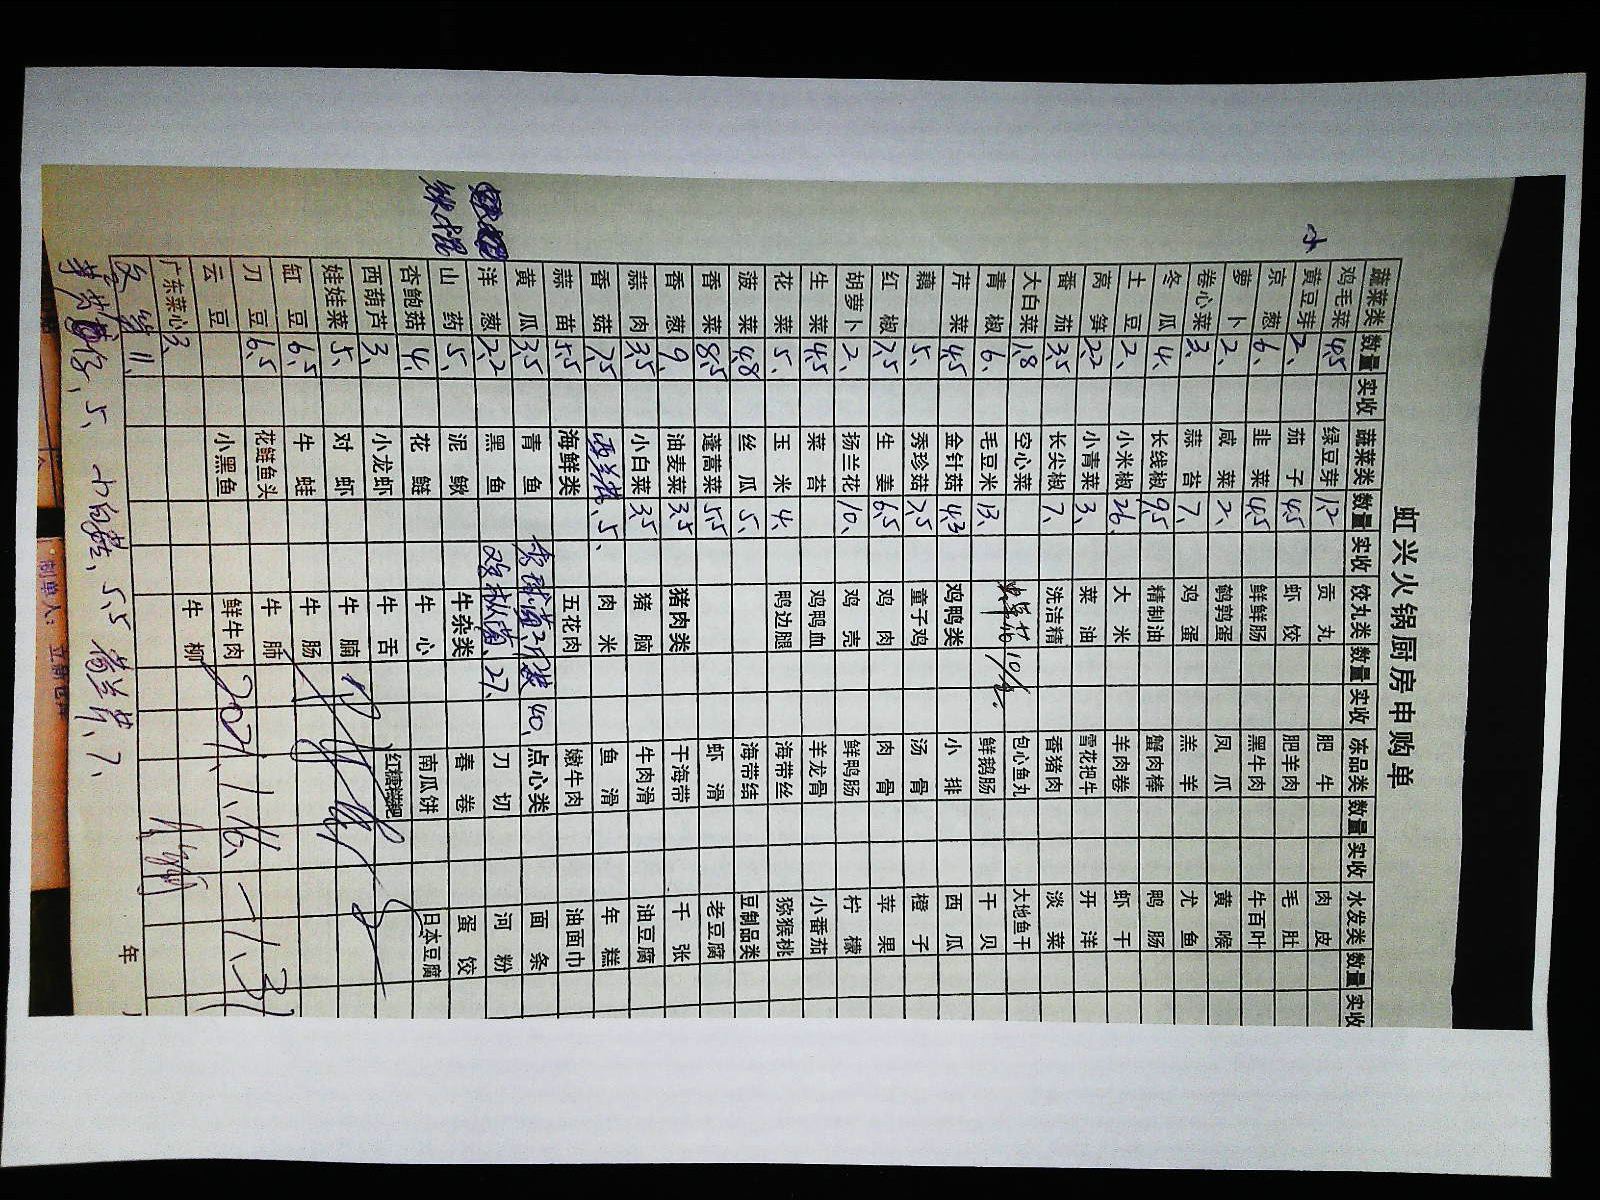 虹兴火锅厨房申购单
蔬菜类 数量 实收 蔬菜类 数量 实收 饺丸类 数量 实收 冻品类 数量 实收 水发类 数量 实收
鸡毛菜 4.5 绿豆芽 1.2 贡丸 肥牛 肉皮
黄豆芽 2、 茄子 4.5 虾饺 肥羊肉 毛肚
京葱 6、 韭菜 4.5 鲜鲜肠 黑牛肉 牛百叶
萝卜 2、 咸菜 2、 鹌鹑蛋 凤爪 黄喉
卷心菜 3、 蒜苔 7、 鸡蛋 羔羊 尤鱼
冬瓜 4、 长线椒 9.5 精制油 蟹肉棒 鸭肠
土豆 2、 小米椒 26、 大米 羊肉卷 虾干
莴笋 2.2 小青菜 3、 菜油 雪花把牛 开洋
番茄 3.5 长尖椒 7、 洗洁精 香猪肉 淡菜
大白菜 1.8 空心菜 包心鱼丸 大地鱼干
青椒 6、 毛豆米 13、 鲜鹅肠 干贝
芹菜 4.5 金针菇 4.3 鸡鸭类 小排 西瓜
藕 5、 秀珍菇 7.5 童子鸡 汤骨 橙子
红椒 7.5 生姜 6.5 鸡肉 肉骨 苹果
胡萝卜 2、 扬兰花 10、 鸡壳 鲜鸭肠 柠檬
生菜 4.5 菜苔 鸡鸭血 羊龙骨 小番茄
花菜 5、 玉米 4、 鸭边腿 海带丝 猕猴桃
菠菜 4.8 丝瓜 5、 海带结 豆制品类
香菜 8.5 蓬蒿菜 5.5 虾滑 老豆腐
香葱 9、 油麦菜 3.5 猪肉类 干海带 千张
蒜肉 3.5 小白菜 3.5 猪脑 牛肉滑 油豆腐
香菇 7.5 西兰花、5、 肉米 鱼滑 年糕
蒜苗 5.5 海鲜类 五花肉 嫩牛肉 油面巾
黄瓜 3.5 青鱼 40、 点心类 面条
洋葱 2.2 黑鱼 27、 刀切 河粉
山药 5、 泥鳅 牛杂类 春卷 蛋饺
杏鲍菇 4、 花鲢 牛心 南瓜饼 日本豆腐
西葫芦 3、 小龙虾 牛舌 红糖糍粑
娃娃菜 5、 对虾 牛腩
缸豆 6.5 牛蛙 牛肠
刀豆 6.5 花鲢鱼头 牛肺
云豆 小黑鱼 鲜牛肉
广东菜心 3、 牛柳
冬笋 11、
2021.1.16、一1.31
5、 5.5 7、
年
制单人：